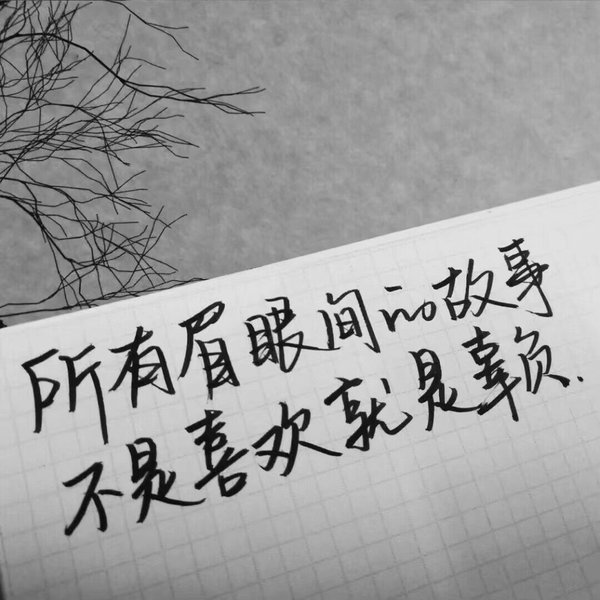 所有眉眼间的故事
不是喜欢就是辜负.